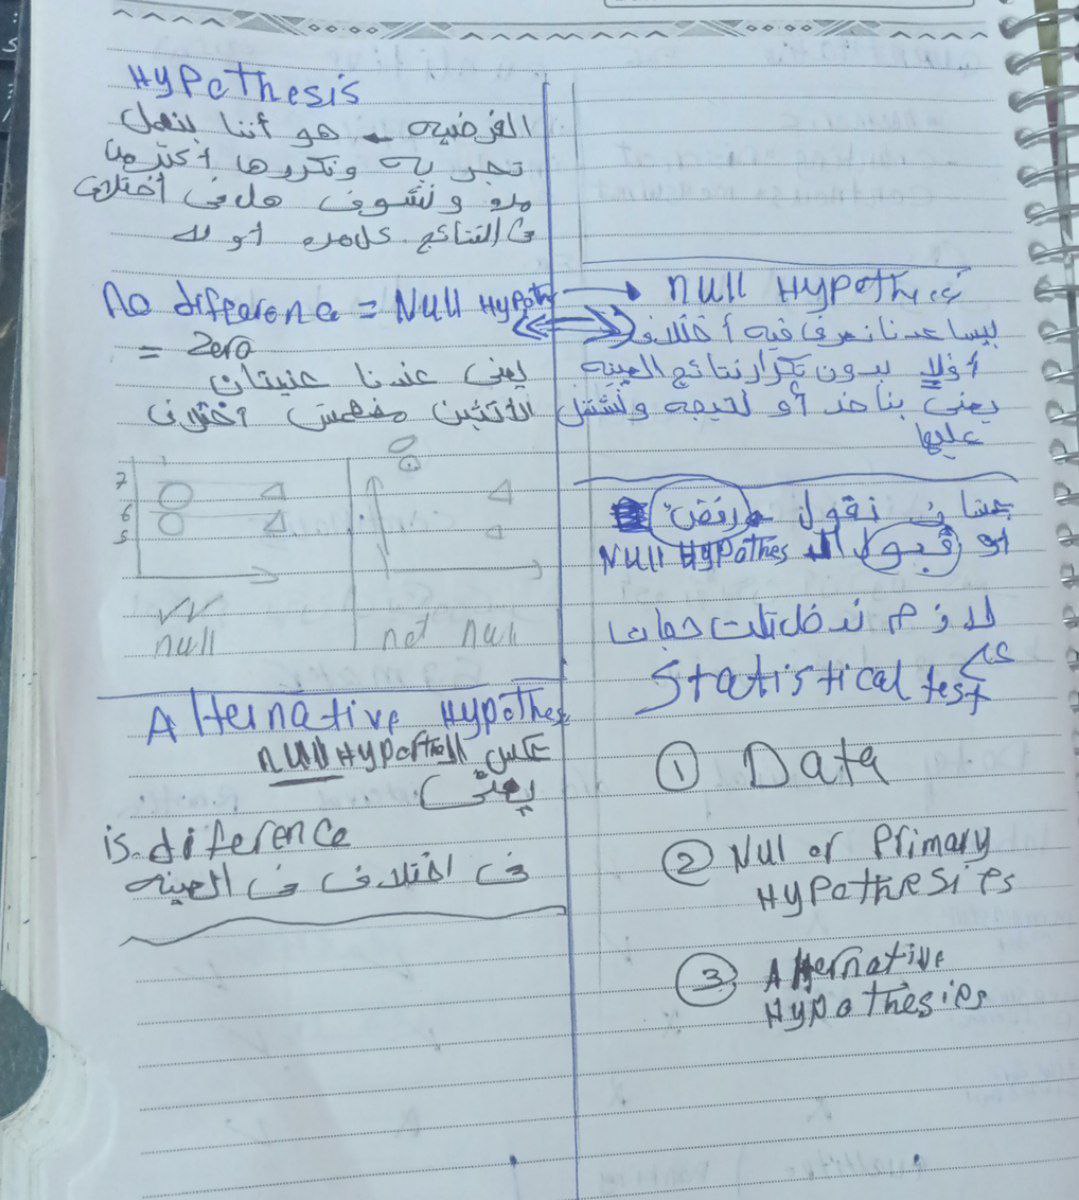 HyPothesis
الفرضيه - هو أننا بنعمل
تجربه ونكررها أكتر من
مره ونشوف هل فى أختلاف
فى النتائج كل مره أو لا
No difference = Null Hypoth
= Zero
يعنى عندنا عنيتان
الأتنين مفهمش أختلاف
7
6
5
null
not null
Alternative Hypothes
عكس الـ null Hypoth
يعنى
is difference
فى اختلاف فى العينه
null Hypothesis
بيساعدنا نعرف فيه أختلاف
أولا بدون تكرار نتائج العينه
يعنى بناخد أو نتيجه ونشتغل
عليها
عشان نقول رفض
او قبول الـ Null Hypothes
لازم ندخل تلت حاجات
على
Statistical test
① Data
② Nul or Primary
HyPothesies
③ Alternative
Hypothesies